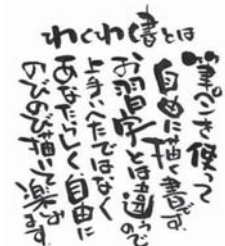 わくわく書とは
筆ペンを使って
自由に描く書です。
お習字とは違うので
上手いへたではなく
あなたらしく自由に
のびのび描いて楽しめます。